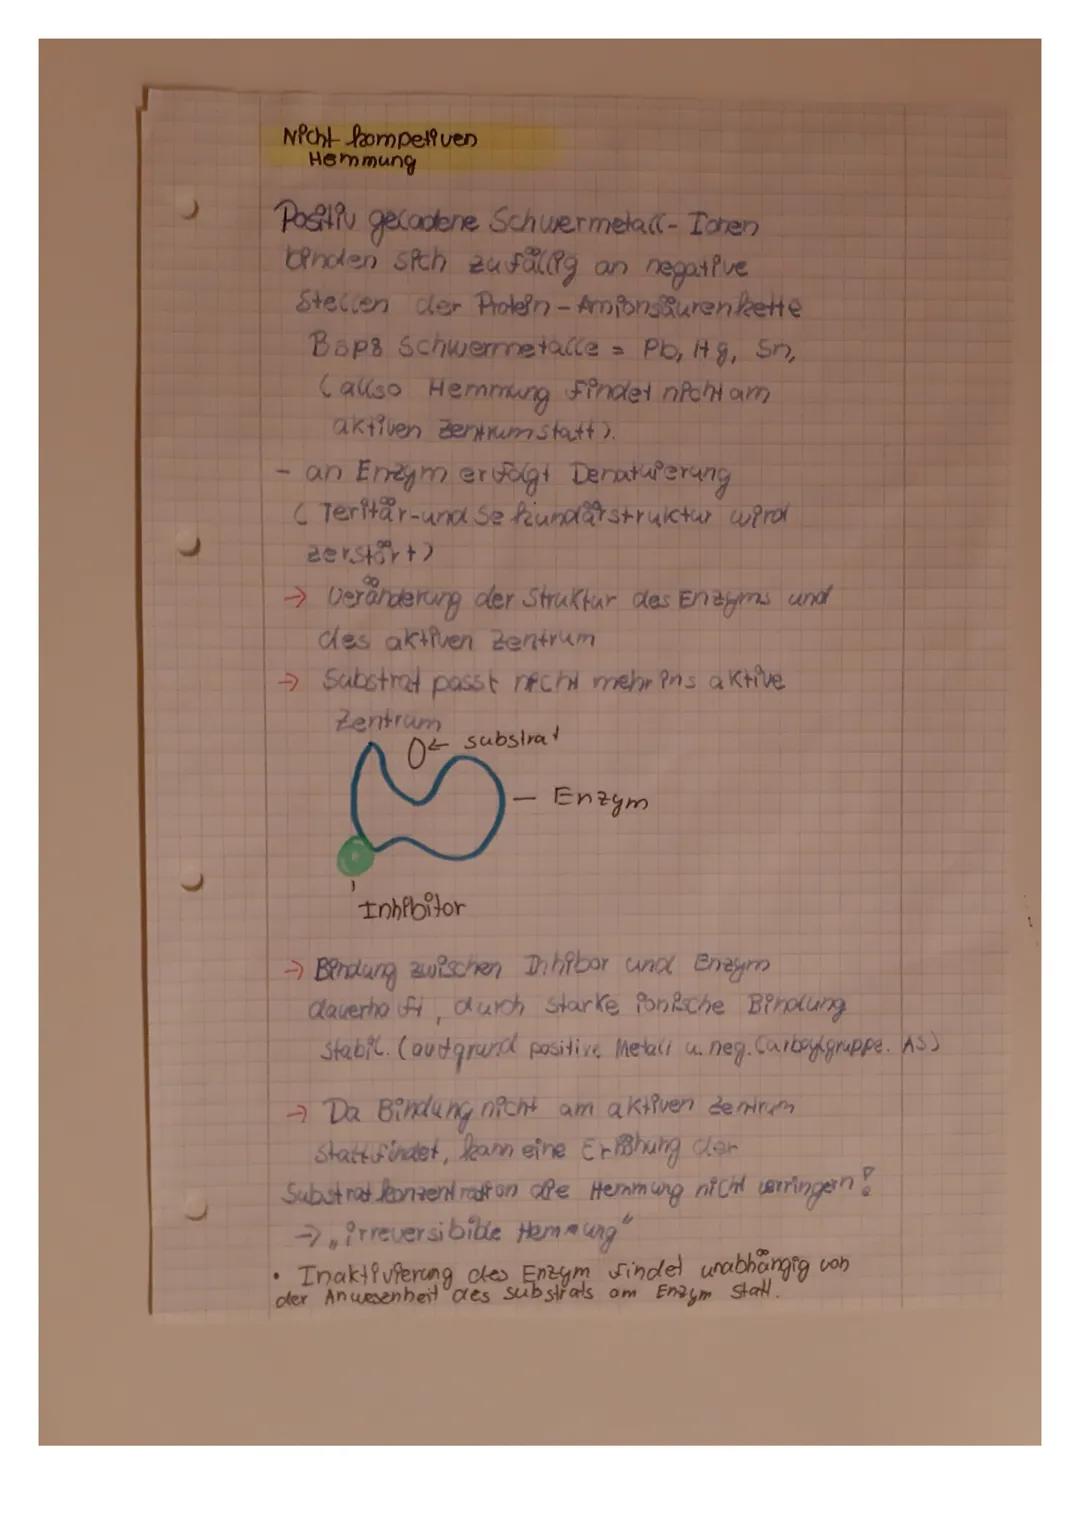 Nicht kompetiven
Hemmung
Positiv geladene Schwermetall-Ionen
binden sich zufällig an negative
Stellen der Protein-Amionsäurenkette
Bsp: Schwermetalle = Pb, Hg, Sn,
(allso Hemmung findet nicht am
aktiven Zentrum statt).
- an Enzym erfolgt Denatuierung
(Teritär-und Sekundärstruktur wird
zerstört)
→ Veränderung der Struktur des Enzyms und
des aktiven Zentrum
→ Substrat passt nicht mehr ins aktive
Zentrum
← substrat
- Enzym
Inhibitor
→ Bindung zwischen Inhibor und Enzym
dauerhaft, durch starke ionische Bindung
stabil. (aufgrund positive Metall u. neg. Carboylgruppe. AS)
→ Da Bindung nicht am aktiven Zentrum
stattfindet, kann eine Erhöhung der
Substratkonzentration die Hemmung nicht verringern!
→ „irreversibible Hemmung"
• Inaktivierung des Enzym findet unabhängig von
der Anwesenheit des substrats am Enzym statt.